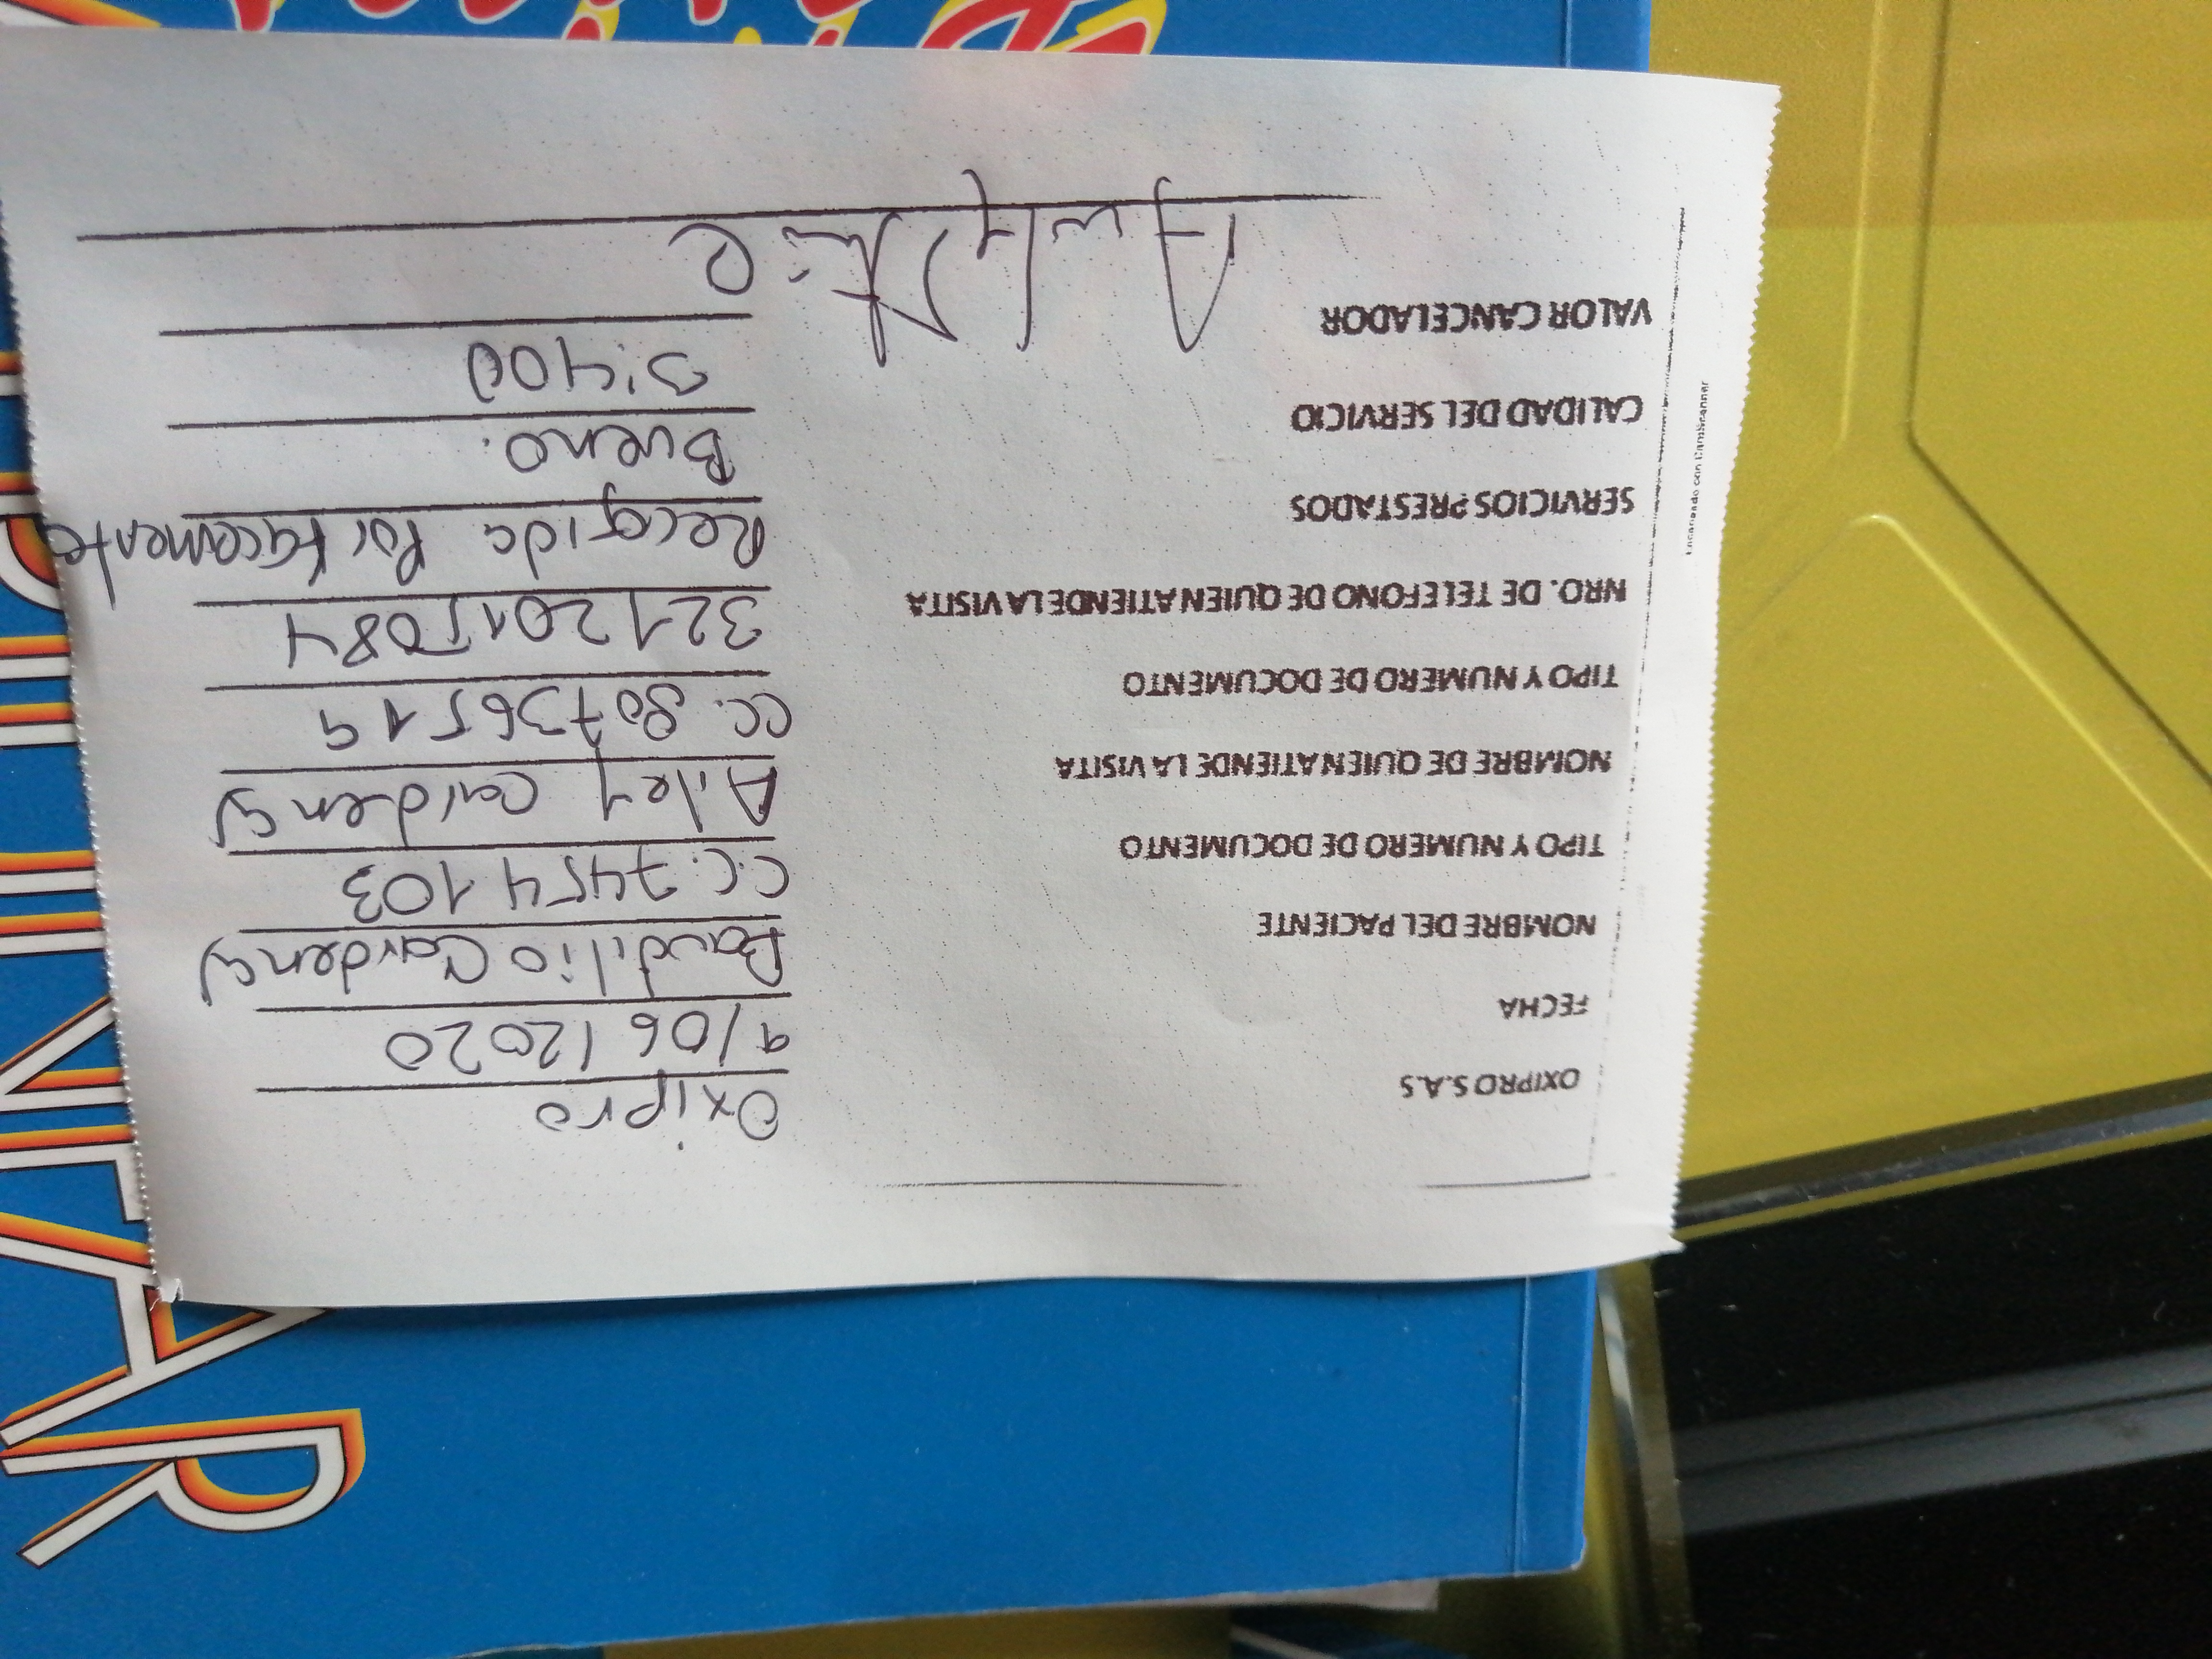 OXIPRO S.A.S Oxipro
FECHA 9/06/2020
NOMBRE DEL PACIENTE Baudilio Cardenas
TIPO Y NUMERO DE DOCUMENTO C.C. 7454103
NOMBRE DE QUIEN ATIENDE LA VISITA Arley Cardenas
TIPO Y NUMERO DE DOCUMENTO CC. 80736519
NRO. DE TELEFONO DE QUIEN ATIENDE LA VISITA 3212015084
SERVICIOS PRESTADOS Recogida Por
CALIDAD DEL SERVICIO Bueno.
VALOR CANCELADOR 3:400
Escaneado con CamScanner